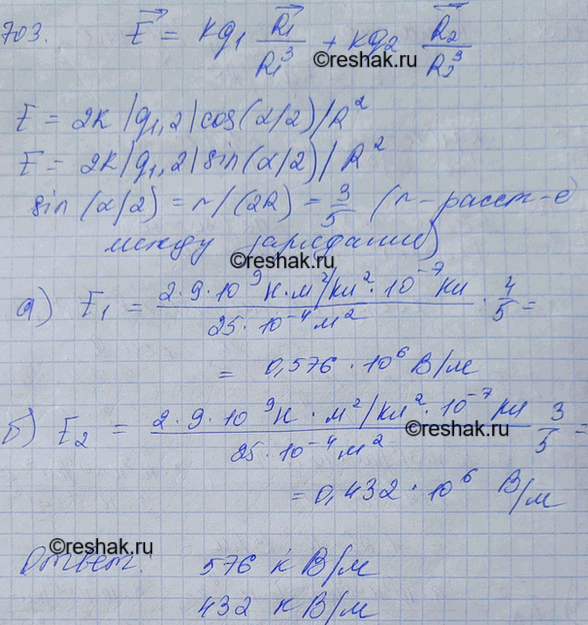 703. E⃗ = kq₁ R⃗₁/R₁³ + kq₂ R⃗₂/R₂³
©reshak.ru
E = 2k |q₁,₂| cos(α/2) / R²
E = 2k |q₁,₂| sin(α/2) / R²
sin(α/2) = r/(2R) = 3/5 (r - расст-е
между зарядами)
©reshak.ru
а) E₁ = 2·9·10⁹ Н·м²/кл²·10⁻⁷ кл / 25·10⁻⁴ м² · 4/5 =
= 0,576 · 10⁶ В/м
б) E₂ = 2·9·10⁹ Н·м²/кл²·10⁻⁷ кл / 25·10⁻⁴ м² · 3/5 =
©reshak.ru
= 0,432 · 10⁶ В/м
©reshak.ru
Ответ: 576 кВ/м
432 кВ/м